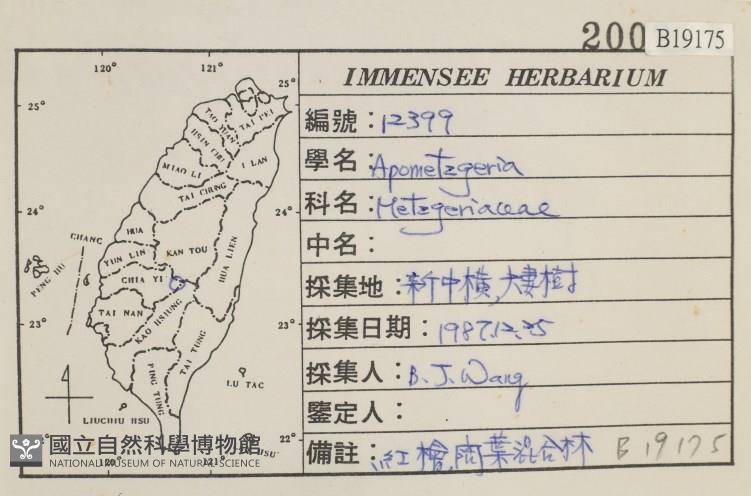 200 B19175
IMMENSEE HERBARIUM
編號：12399
學名：Apometzgeria
科名：Metzgeriaceae
中名：
採集地：新中橫，大婁樹
採集日期：1987.12.25
採集人：B. J. Wang
鑒定人：
備註：紅檜，闊葉混合林 B19175
120° 121°
25° 25°
TAO YUAN
TAI PEI
HSIN CHU
I LAN
MIAO LI
TAI CHUNG
24° 24°
CHANG HUA
NAN TOU
HUA LIEN
YUN LIN
PENG HU
CHIA YI
TAI NAN
KAO HSIUNG
23° 23°
TAI TUNG
PING TUNG
LU TAO
LIUCHIU HSU
22°
HSU
120° 121°
國立自然科學博物館
NATIONAL MUSEUM OF NATURAL SCIENCE